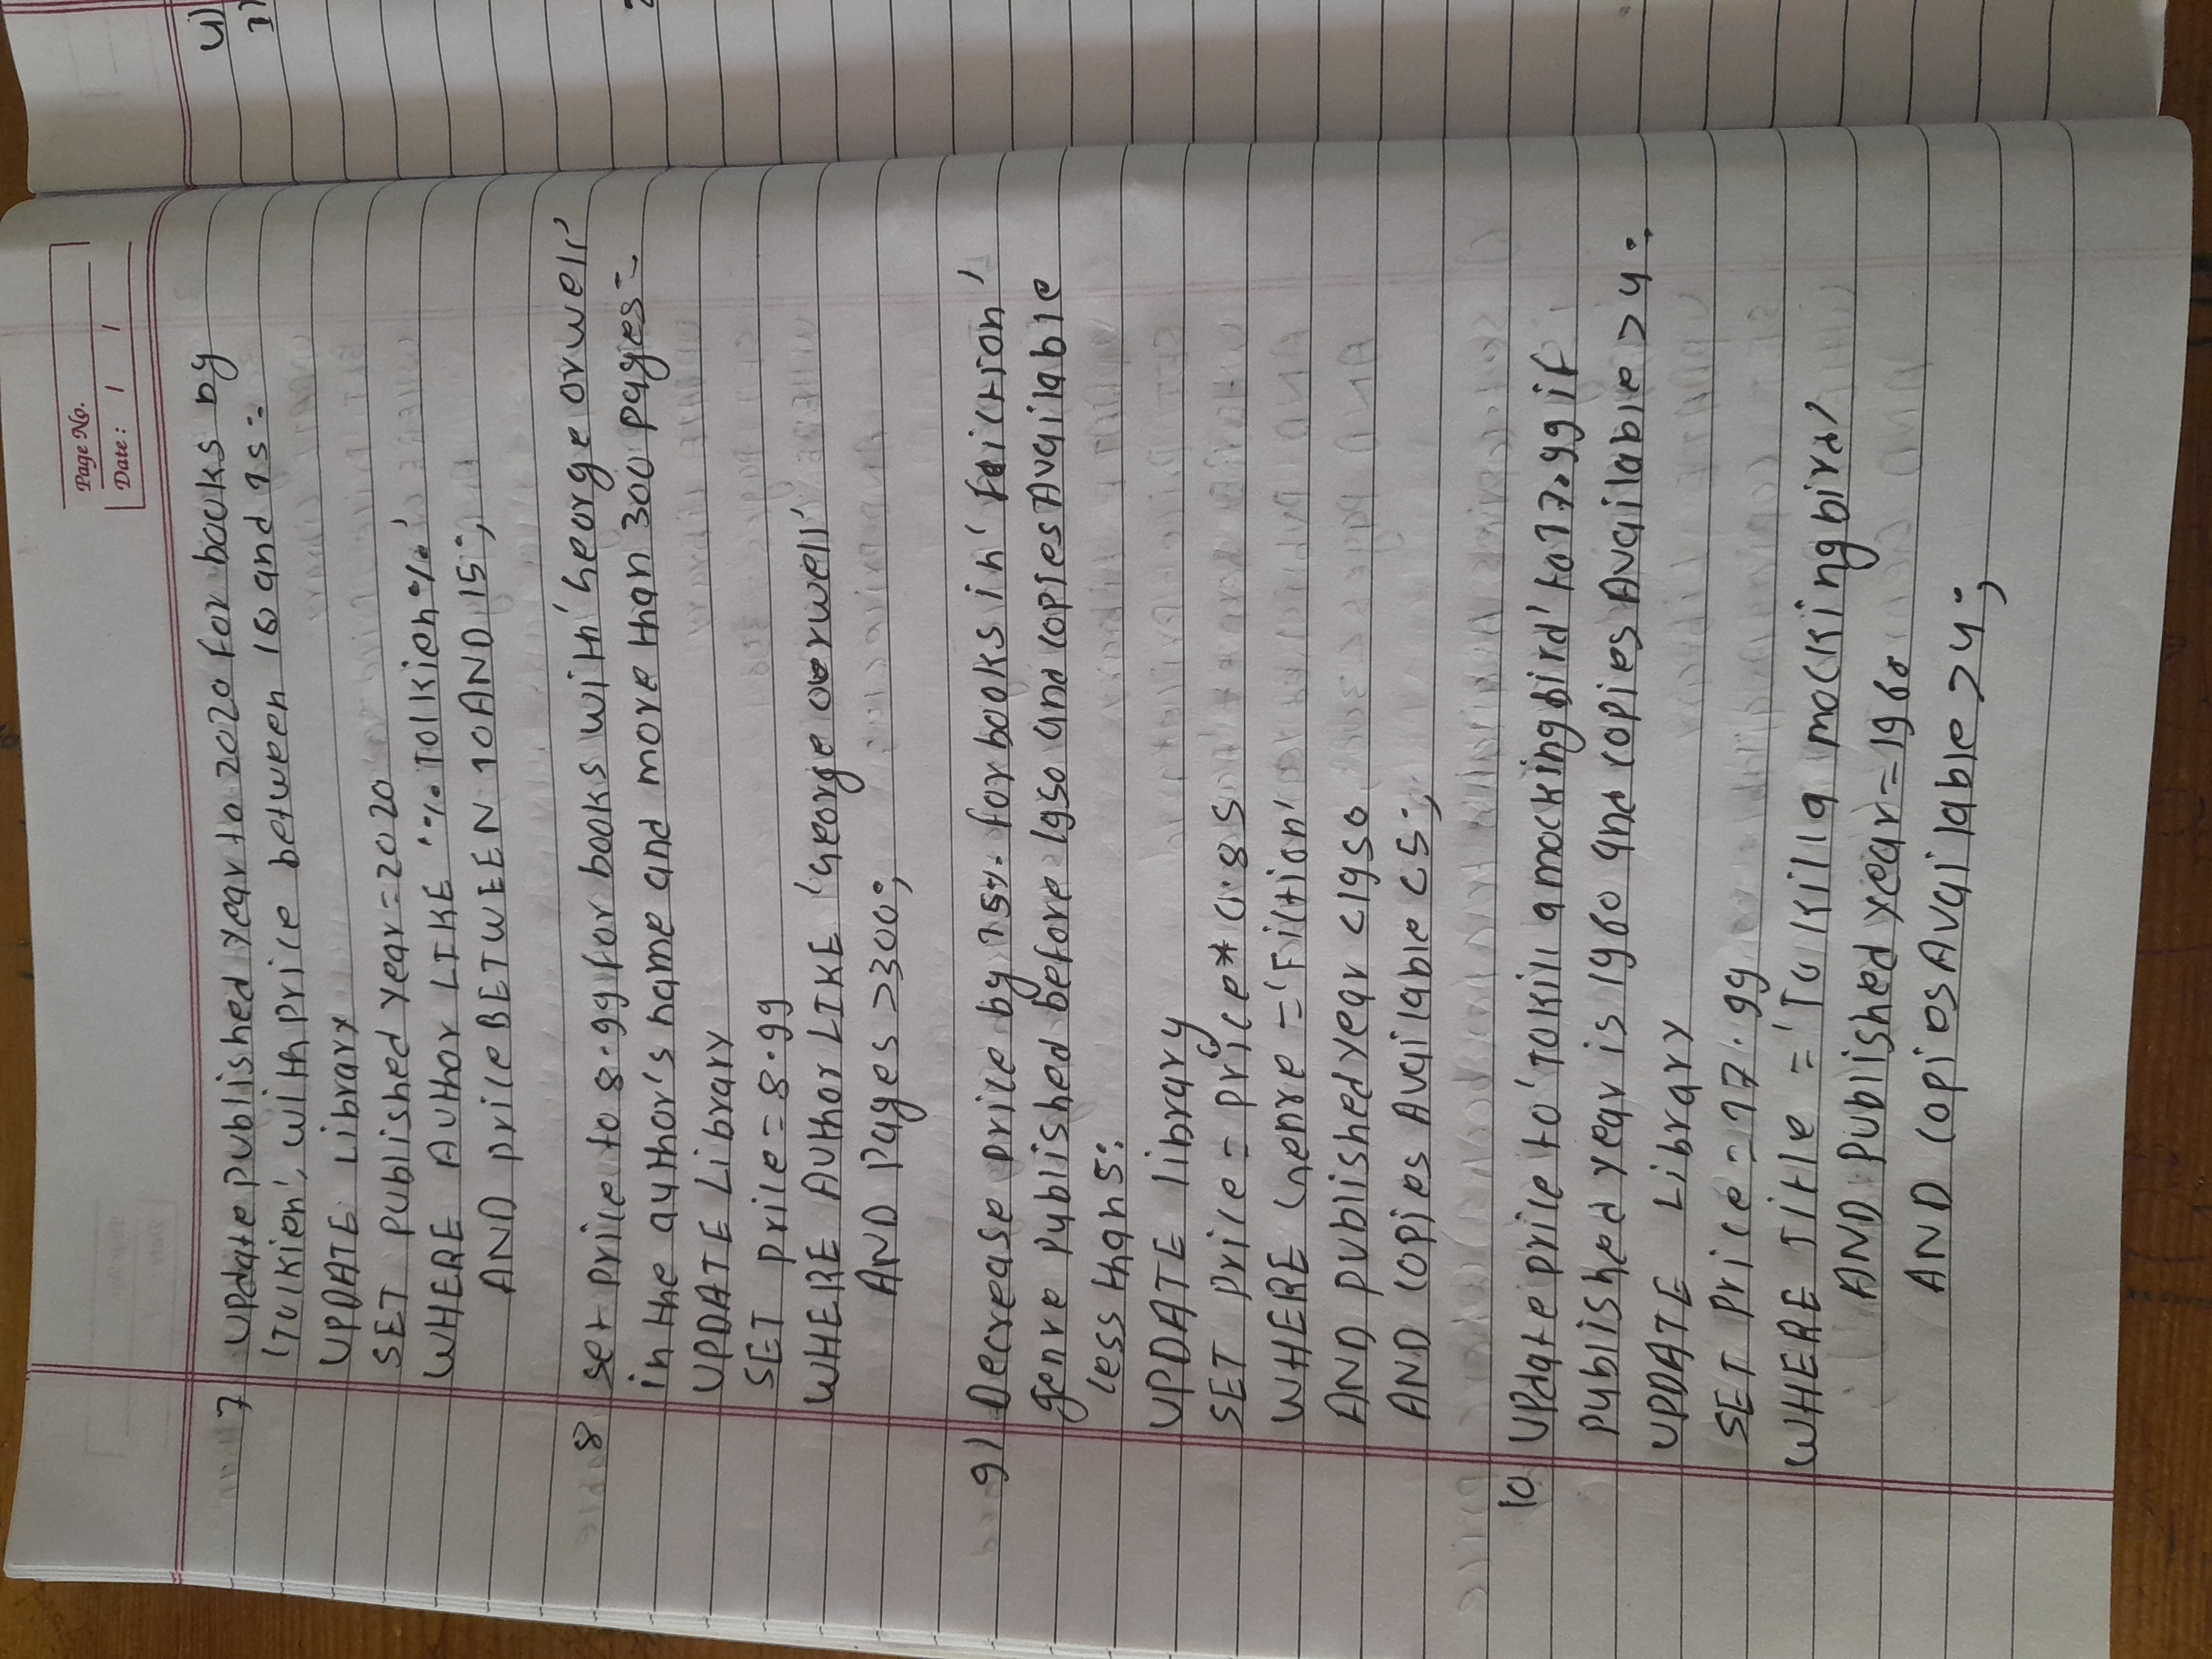 Page No.
Date : / /
7 Update published year to 2020 for books by
'Tolkien', with price between 10 and 15:-
UPDATE Library
SET published year=2020
WHERE Author LIKE '%Tolkien%'
AND price BETWEEN 10 AND 15;
8 set price to 8.99 for books with 'George orwell'
in the author's name and more than 300 pages:-
UPDATE Library
SET price=8.99
WHERE Author LIKE 'George orwell'
AND Pages >300;
9) Decrease price by 15% for books in 'fiction'
genre published before 1950 and copiesAvailable
less than 5:
UPDATE library
SET price = price* 0.85
WHERE Genre ='Fiction'
AND publishedyear <1950
AND copies Available <5;
10 Update price to 'To Kill a mockingbird' to 17.99 if
published year is 1960 and copies Available >4:
UPDATE Library
SET price =17.99
WHERE Title ='To Kill a mockingbird'
AND published year=1960
AND copiesAvailable >4;
4)